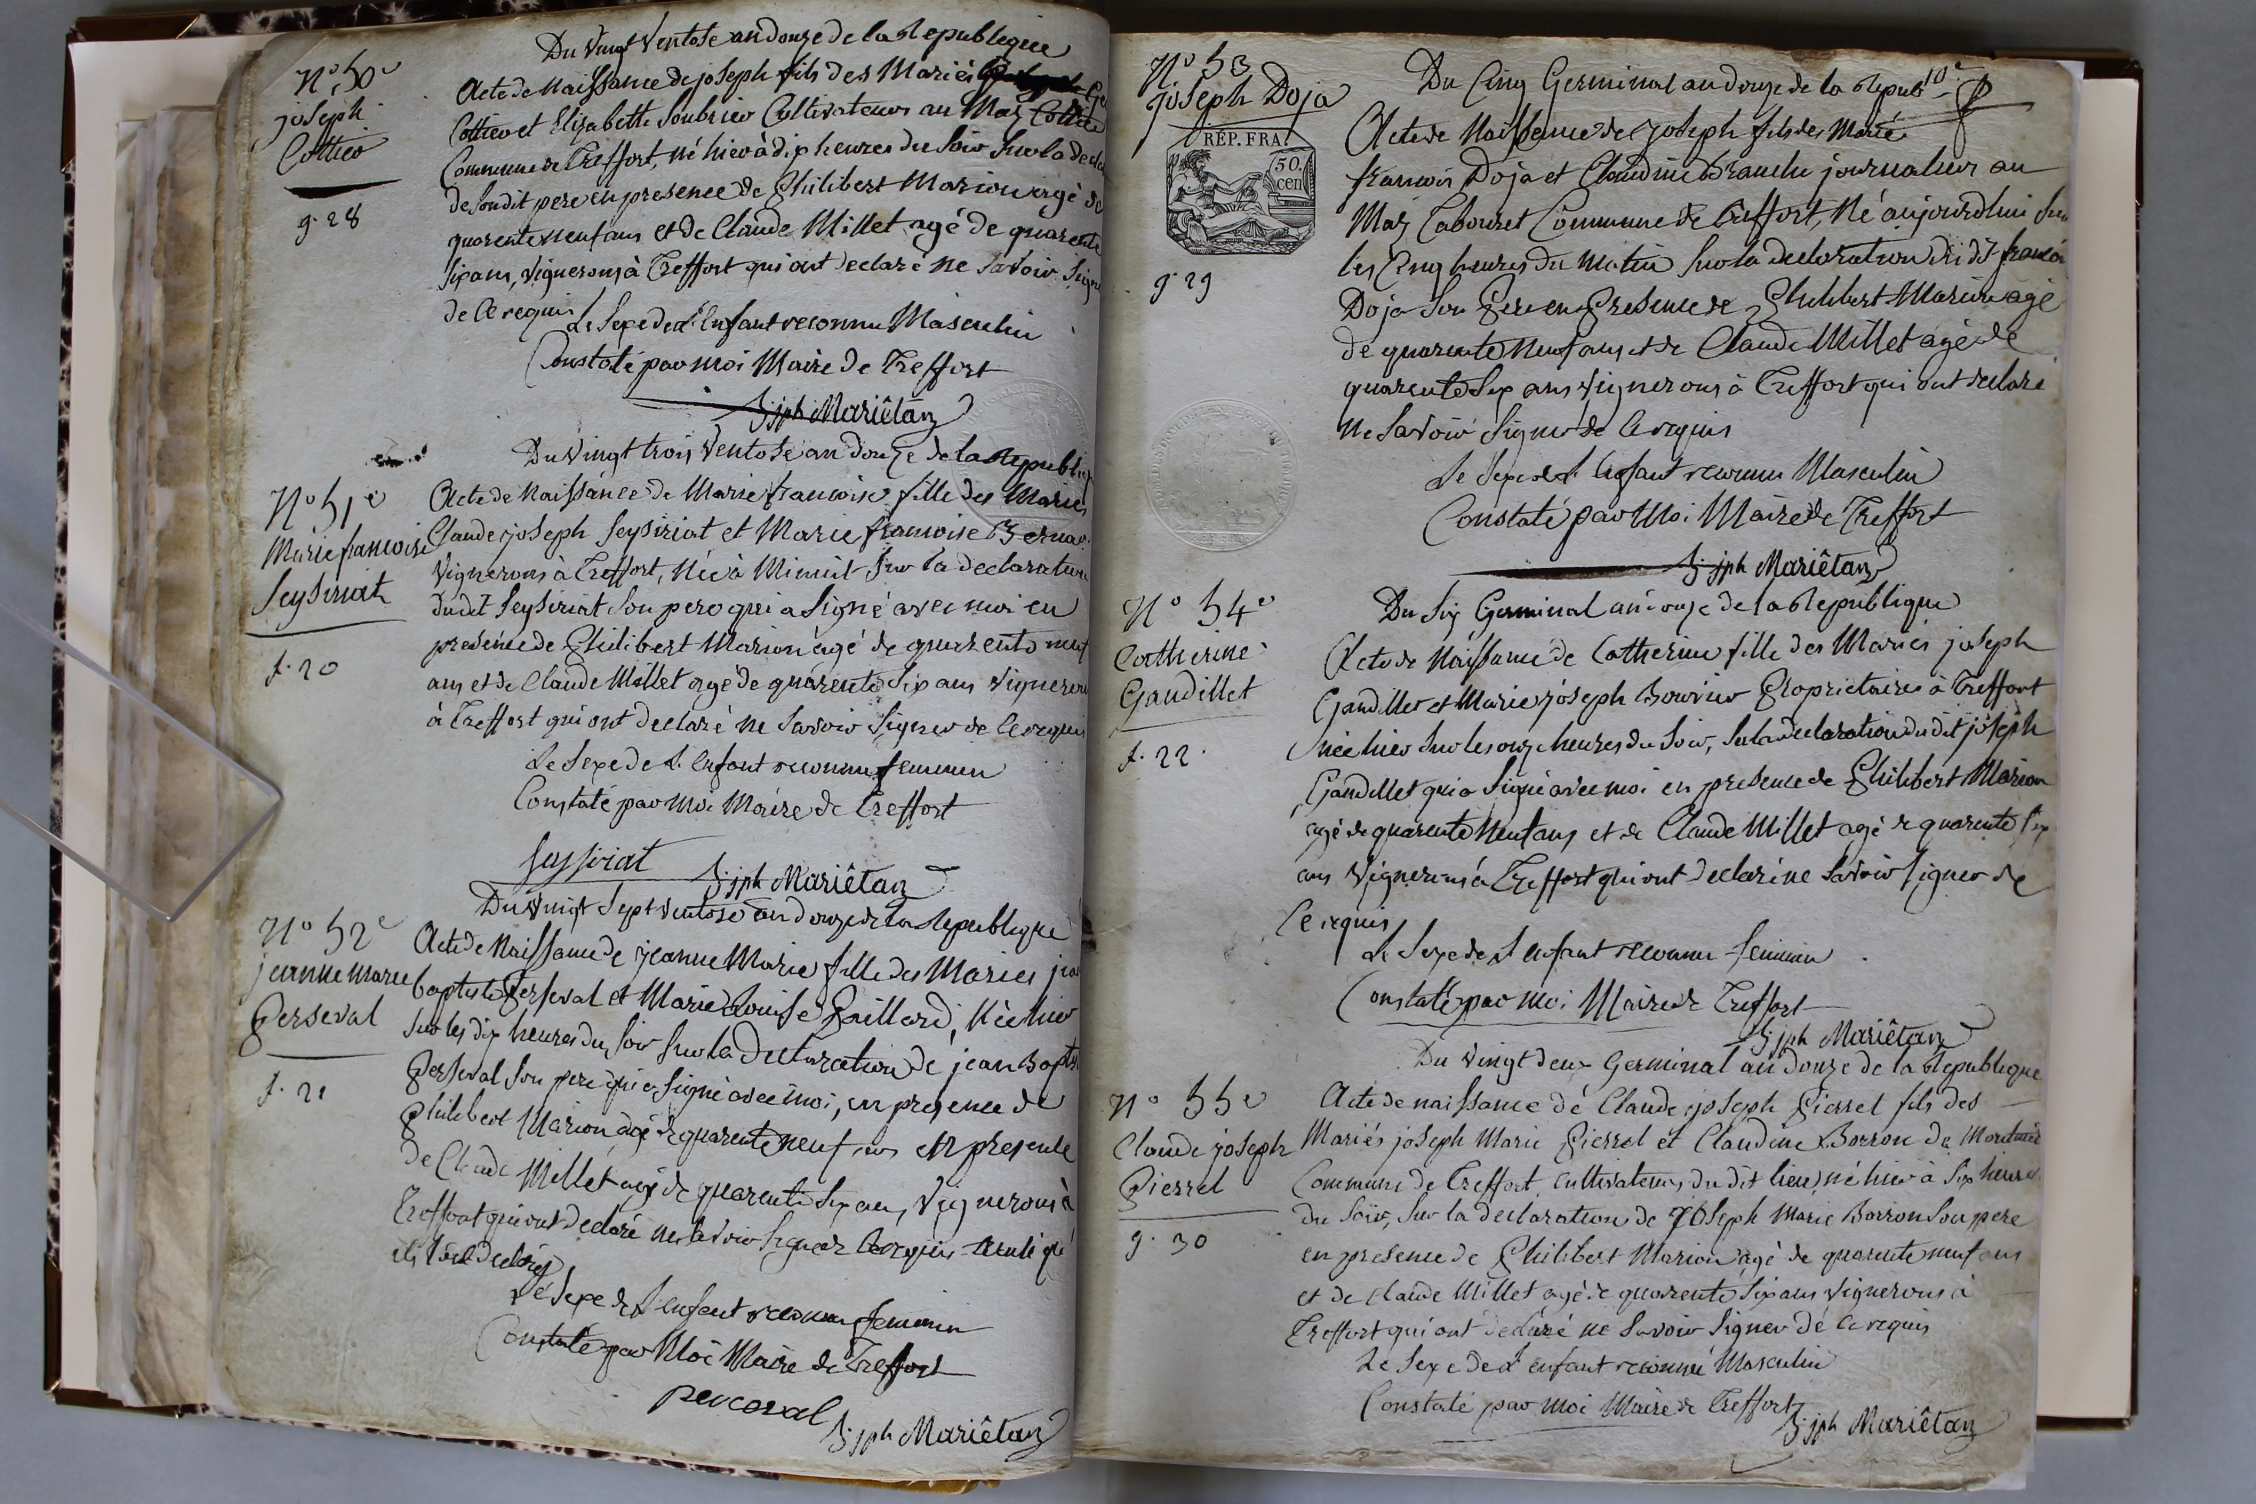 Du vingt ventose an douze de la Republique
N° 50e
joseph
Cottier
g. 28
Acte de Naissance de joseph fils des Mariés
Cottier et Elizabette Soubrier Cultivateurs au Maz Cottier
Commune de Treffort, né hier à dix heures du Soir Sur la decla
de Son dit pere en presence de Philibert Marion agé de
quarente neuf ans et de Claude Millet agé de quarente
Six ans, vignerons à Treffort qui ont declaré ne Savoir Signe
de Ce requis
Le Sexe de L'Enfant reconnu Masculin
Constaté par moi Maire de Treffort
B. jph Mariêtan
Du vingt trois ventose an douze de la Republiq
N° 51e
Marie francoise
Seysiriat
f. 20
Acte de Naissance de Marie francoise fille des Mariés
Claude joseph Seysiriat et Marie francoise
Vignerons à Treffort, Née à Minuit Sur la declaration
dudit Seysiriat Son pere qui a Signé avec moi en
presence de Philibert Marion agé de quarente neuf
ans et de Claude Millet agé de quarente Six ans vignerons
à Treffort qui ont declaré ne Savoir Signer de Ce requis
Le Sexe de L'enfant reconnu feminin
Constaté par Moi Maire de Treffort
Seysiriat B. jph Mariêtan
Du vingt Sept ventose an douze de la Republique
N° 52e
jeanne marie
Perseval
f. 21
Acte de Naissance de jeanne Marie fille des Mariés jean
baptiste Perseval et Marie Louise Gaillard, Née hier
Sur les dix heures du Soir Sur la declaration de jean Bapts
Perseval Son pere qui a Signé avec moi, en presence de
Philibert Marion agé de quarente neuf ans et presente
de Claude Millet agé de quarente Six ans, Vignerons à
Treffort qui ont declaré ne Savoir Signer de Ce requis
Le Sexe de L'enfant reconnu feminin
Constaté par Moi Maire de Treffort
perceval
B. jph Mariêtan
10e
Du Cinq Germinal an douze de la Repub
N° 53
joseph Doja
RÉP. FRA.
50.
cen
g. 29
Acte de Naissance de joseph fils des Mariés
francois Doja et Claudine Branche journalier au
Maz Tabouret Commune de Treffort, Né aujourd'hui Sur
les Cinq heures du Matin Sur la declaration du dit francois
Doja Son Pere en Presence de Philibert Marion agé
de quarente Neuf ans et de Claude Millet agé de
quarente Six ans vignerons à Treffort qui ont declaré
Ne Savoir Signer de Ce requis
Le Sexe de L'enfant reconnu Masculin
Constaté par Moi Maire de Treffort
B. jph Mariêtan
Du Six Germinal an douze de la Republique
N° 54e
Catherine
Gaudillet
f. 22
Acte de Naissance de Catherine fille des Mariés joseph
Gaudillet et Marie joseph Bouvier Proprietaires à Treffort
née hier Sur les onze heures du Soir, Sur la declaration du dit joseph
Gaudillet qui a Signé avec moi en presence de Philibert Marion
agé de quarente Neuf ans et de Claude Millet agé de quarente Six
ans Vignerons à Treffort qui ont declaré ne Savoir Signer de
Ce requis
Le Sexe de L'enfant reconnu feminin
Constaté par Moi Maire de Treffort
B. jph Mariêtan
Du vingt deux Germinal an douze de la Republique
N° 55e
Claude joseph
Pierrel
g. 30
Acte de naissance de Claude joseph Pierrel fils des
Mariés joseph Marie Pierrel et Claudine Borron de Montmer
Commune de Treffort Cultivateurs du dit lieu, né hier à Six heures
du Soir, Sur la declaration de Joseph Marie Borron Son pere
en presence de Philibert Marion agé de quarente neuf ans
et de Claude Millet agé de quarente Six ans vignerons à
Treffort qui ont declaré ne Savoir Signer de Ce requis
Le Sexe de L'enfant reconnu Masculin
Constaté par Moi Maire de Treffort
B. jph Mariêtan